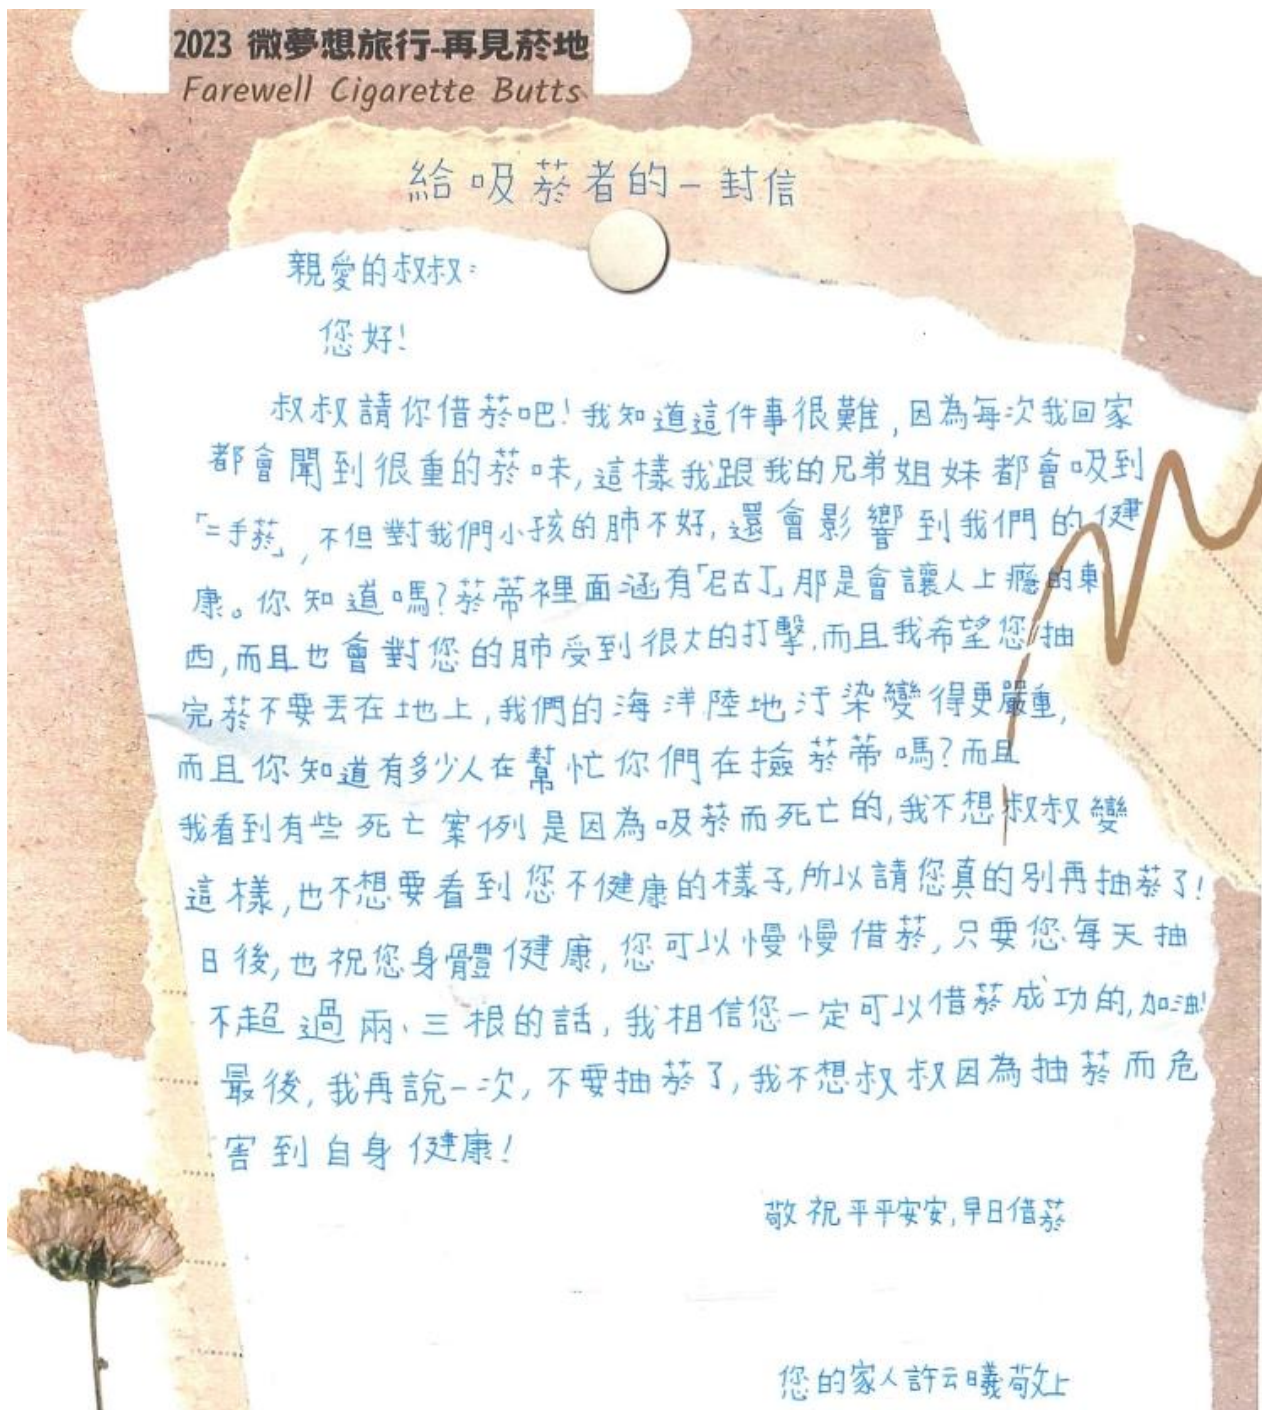 2023 微夢想旅行-再見菸地
Farewell Cigarette Butts
給吸菸者的一封信
親愛的叔叔:
您好!
叔叔請你借菸吧!我知道這件事很難,因為每次我回家
都會聞到很重的菸味,這樣我跟我的兄弟姐妹都會吸到
「二手菸」,不但對我們小孩的肺不好,還會影響到我們的健
康。你知道嗎?菸蒂裡面涵有「尼古丁」那是會讓人上癮的東
西,而且也會對您的肺受到很大的打擊,而且我希望您抽
完菸不要丟在地上,我們的海洋陸地汙染變得更嚴重,
而且你知道有多少人在幫忙你們在撿菸蒂嗎?而且
我看到有些死亡案例是因為吸菸而死亡的,我不想叔叔變
這樣,也不想要看到您不健康的樣子,所以請您真的別再抽菸了!
日後,也祝您身體健康,您可以慢慢借菸,只要您每天抽
不超過兩、三根的話,我相信您一定可以借菸成功的,加油!
最後,我再說一次,不要抽菸了,我不想叔叔因為抽菸而危
害到自身健康!
敬祝平平安安,早日借菸
您的家人許云曦敬上